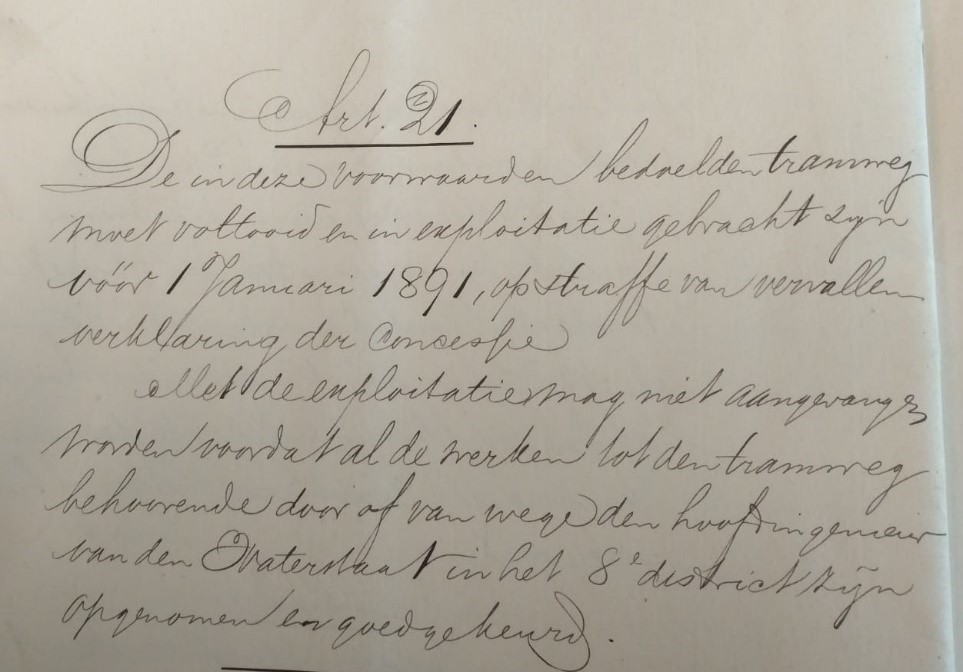 Art. 21.
De in deze voorwaarden bedoelden tramweg
moet voltooid en in exploitatie gebracht zijn
vóór 1 Januari 1891, op straffe van vervallen
verklaring der Concessie
Met de exploitatie mag niet aangevangen
worden voordat al de werken tot den tramweg
behoorende door of van wege den hoofdingenieur
van den Waterstaat in het 8e district zijn
opgenomen en goedgekeurd.